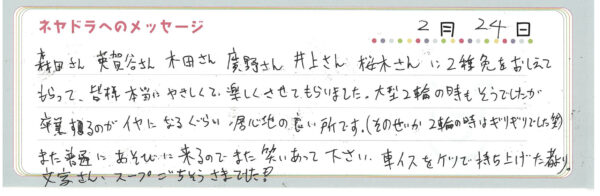 ネヤドラへのメッセージ
2月 24日
森田さん 英賀谷さん 木田さん 廣野さん 井上さん 桜木さん に2種免をおしえて
もらって、皆様本当にやさしくて、楽しくさせてもらいました。大型2輪の時もそうでしたが
卒業するのがイヤになるぐらい居心地の良い所です。(そのせいか 2輪の時はギリギリでした笑)
また普通にあそびに来るのでまた笑いあって下さい。車イスをケツで持ち上げた
文家さん、スープごちそうさまでした!